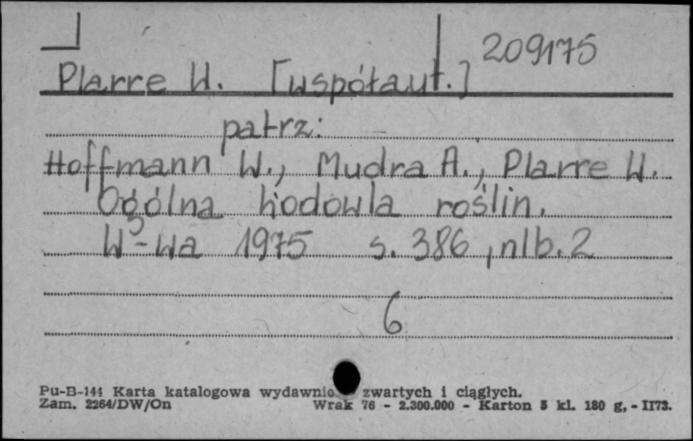 209175
Plarre W. [współaut.]
patrz:
Hoffmann W., Mudra A., Plarre W.
Ogólna hodowla roślin.
W-wa 1975 s. 386, nlb. 2
6
Pu-B-144 Karta katalogowa zwartych i ciągłych.
Zam. 2264/DW/On Wrak 76 - 2.300.000 - Karton 5 kl. 180 g, - II73.